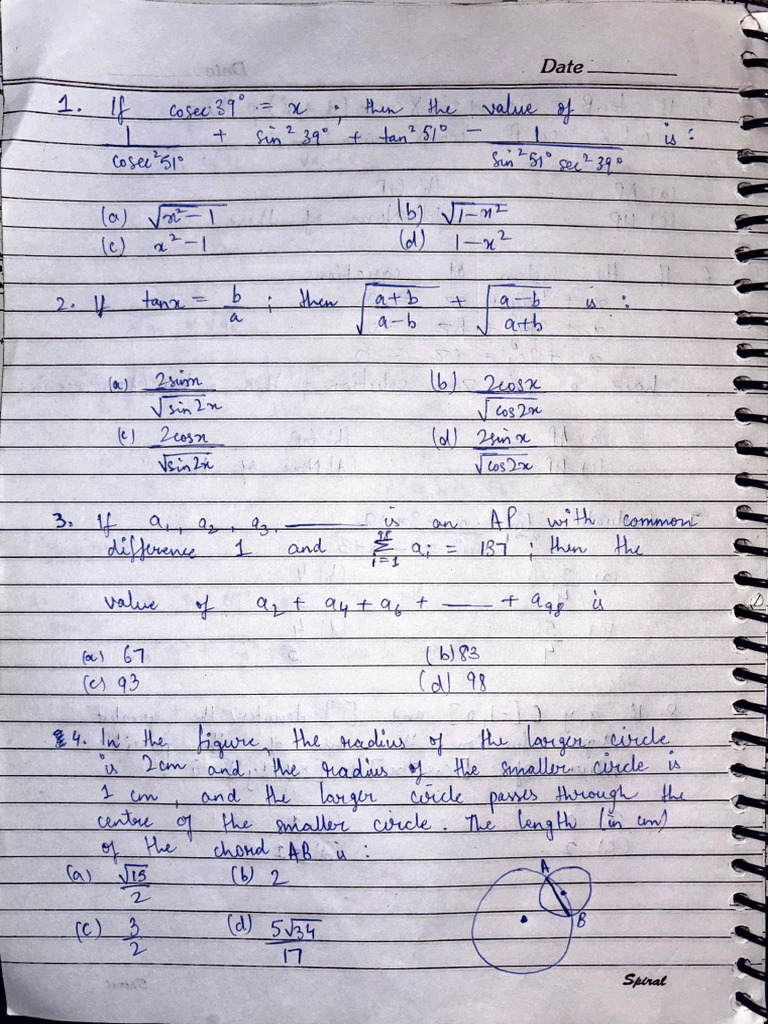 Date
1. If cosec 39° = x ; then the value of
1/cosec²51° + sin²39° + tan²51° − 1/(sin²51° sec²39°) is :
(a) √(x²−1) (b) √(1−x²)
(c) x²−1 (d) 1−x²
2. If tanx = b/a ; then √((a+b)/(a−b)) + √((a−b)/(a+b)) is :
(a) 2sinx/√sin2x (b) 2cosx/√cos2x
(c) 2cosx/√sin2x (d) 2sinx/√cos2x
3. If a₁, a₂, a₃, —— is an AP with common
difference 1 and Σᵢ₌₁⁹⁸ aᵢ = 137 ; then the
value of a₂ + a₄ + a₆ + —— + a₉₈ is
(a) 67 (b) 83
(c) 93 (d) 98
4. In the figure, the radius of the larger circle
is 2cm and the radius of the smaller circle is
1 cm, and the larger circle passes through the
centre of the smaller circle. The length (in cm)
of the chord AB is :
(a) √15/2 (b) 2
(c) 3/2 (d) 5√34/17
A
B
Spiral